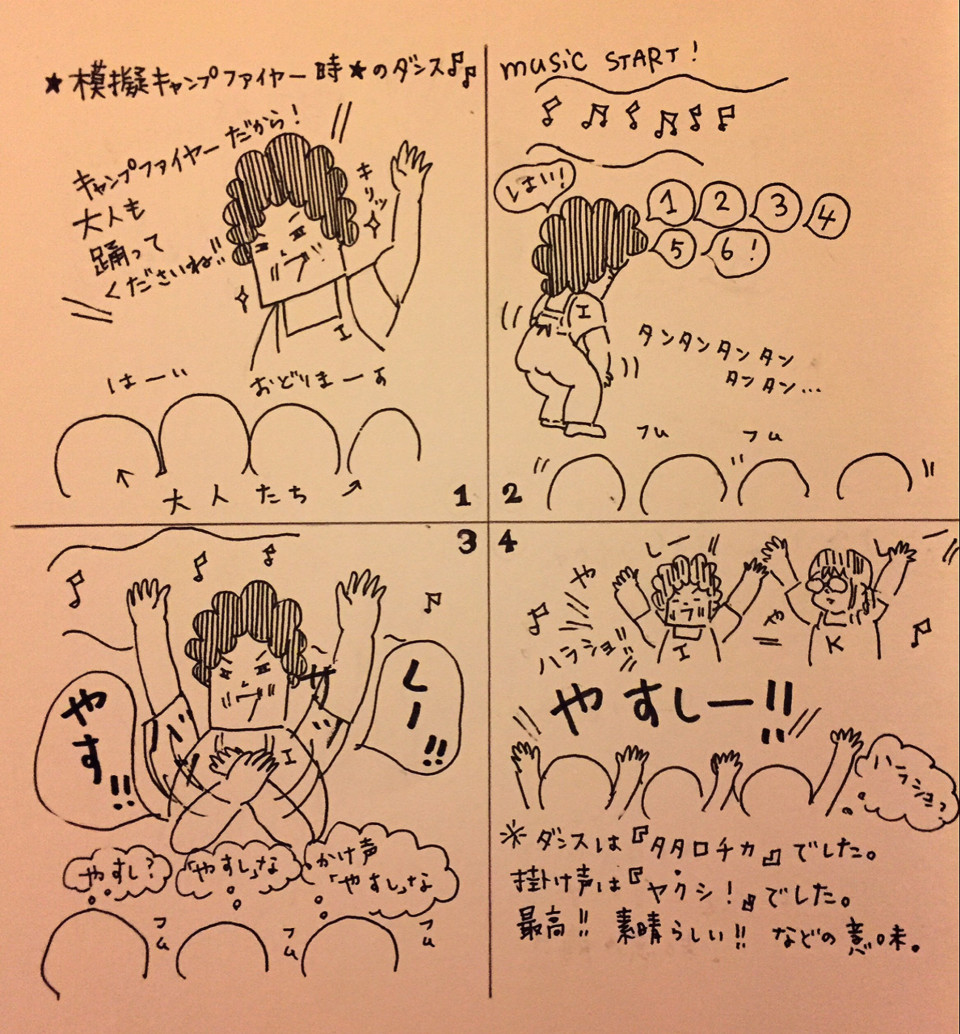 ★模擬キャンプファイヤー時★のダンス♪♪
キャンプファイヤーだから！
大人も
踊って
くださいね!!
キリッ
I
はーい
おどりまーす
大人たち
1
music START！
しまい！
1 2 3 4
5 6！
I
タンタンタンタン
タンタン…
フム
フム
2
3
やす!!
しー!!
バ
ッ
I
やすし？
「やすし」な
かけ声
「やすし」な
フム
フム
フム
4
や
しー
や
しー
ハラショー!!
I
K
やすしー!!
ハラショー
※ダンスは『タタロチカ』でした。
掛け声は『ヤクシ！』でした。
最高!! 素晴らしい!! などの意味。